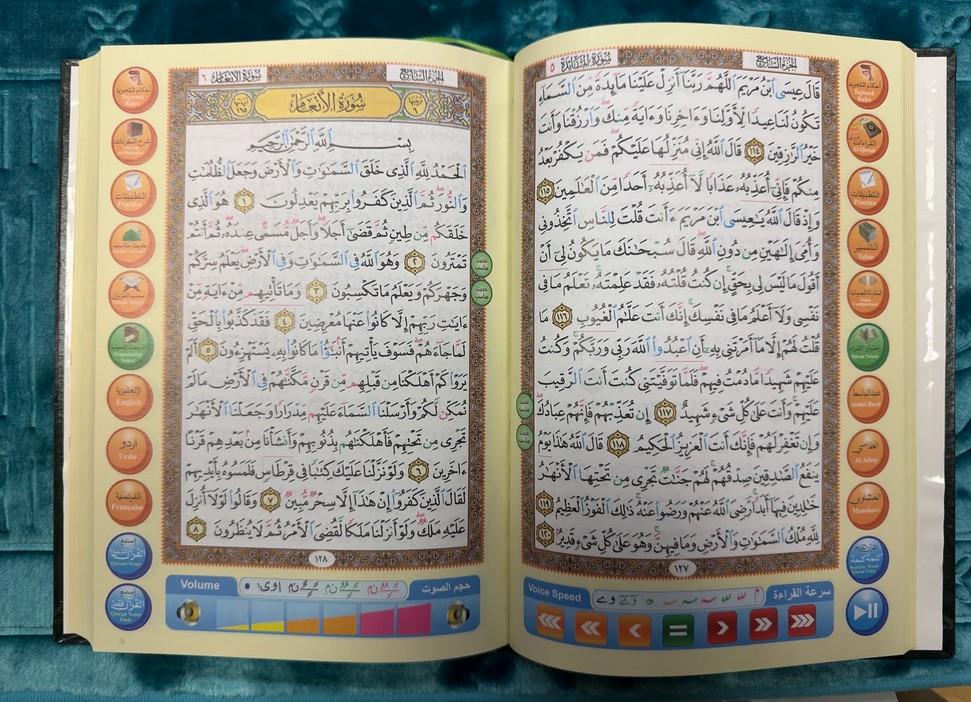 الجزء السابع
سورة المائدة ٥
قَالَ عِيسَى ٱبْنُ مَرْيَمَ ٱللَّهُمَّ رَبَّنَآ أَنزِلْ عَلَيْنَا مَآئِدَةً مِّنَ ٱلسَّمَآءِ
تَكُونُ لَنَا عِيدًا لِّأَوَّلِنَا وَءَاخِرِنَا وَءَايَةً مِّنكَ وَٱرْزُقْنَا وَأَنتَ
خَيْرُ ٱلرَّٰزِقِينَ ١١٤ قَالَ ٱللَّهُ إِنِّى مُنَزِّلُهَا عَلَيْكُمْ فَمَن يَكْفُرْ بَعْدُ
مِنكُمْ فَإِنِّىٓ أُعَذِّبُهُۥ عَذَابًا لَّآ أُعَذِّبُهُۥٓ أَحَدًا مِّنَ ٱلْعَٰلَمِينَ ١١٥
وَإِذْ قَالَ ٱللَّهُ يَٰعِيسَى ٱبْنَ مَرْيَمَ ءَأَنتَ قُلْتَ لِلنَّاسِ ٱتَّخِذُونِى
وَأُمِّىَ إِلَٰهَيْنِ مِن دُونِ ٱللَّهِ قَالَ سُبْحَٰنَكَ مَا يَكُونُ لِىٓ أَنْ
أَقُولَ مَا لَيْسَ لِى بِحَقٍّ إِن كُنتُ قُلْتُهُۥ فَقَدْ عَلِمْتَهُۥ تَعْلَمُ مَا فِى
نَفْسِى وَلَآ أَعْلَمُ مَا فِى نَفْسِكَ إِنَّكَ أَنتَ عَلَّٰمُ ٱلْغُيُوبِ ١١٦ مَا
قُلْتُ لَهُمْ إِلَّا مَآ أَمَرْتَنِى بِهِۦٓ أَنِ ٱعْبُدُوا۟ ٱللَّهَ رَبِّى وَرَبَّكُمْ وَكُنتُ
عَلَيْهِمْ شَهِيدًا مَّا دُمْتُ فِيهِمْ فَلَمَّا تَوَفَّيْتَنِى كُنتَ أَنتَ ٱلرَّقِيبَ
عَلَيْهِمْ وَأَنتَ عَلَىٰ كُلِّ شَىْءٍ شَهِيدٌ ١١٧ إِن تُعَذِّبْهُمْ فَإِنَّهُمْ عِبَادُكَ
وَإِن تَغْفِرْ لَهُمْ فَإِنَّكَ أَنتَ ٱلْعَزِيزُ ٱلْحَكِيمُ ١١٨ قَالَ ٱللَّهُ هَٰذَا يَوْمُ
يَنفَعُ ٱلصَّٰدِقِينَ صِدْقُهُمْ لَهُمْ جَنَّٰتٌ تَجْرِى مِن تَحْتِهَا ٱلْأَنْهَٰرُ
خَٰلِدِينَ فِيهَآ أَبَدًا رَّضِىَ ٱللَّهُ عَنْهُمْ وَرَضُوا۟ عَنْهُ ذَٰلِكَ ٱلْفَوْزُ ٱلْعَظِيمُ ١١٩
لِلَّهِ مُلْكُ ٱلسَّمَٰوَٰتِ وَٱلْأَرْضِ وَمَا فِيهِنَّ وَهُوَ عَلَىٰ كُلِّ شَىْءٍ قَدِيرٌۢ ١٢٠
١٢٧
Voice Speed
سرعة القراءة
أحكام التجويد
Tajweed Rules
القراءات
التطبيقات
Practise
التفسير
Tafsir
Quran Voice
عبد الباسط
Abdul Basit
العفاسي
Al-Afasy
المنشاوي
Manshavi
الجزء السابع
سورة الأنعام ٦
ترتيبها ٦
سُورَةُ الأَنْعَام
آياتها ١٦٥
بِسْمِ ٱللَّهِ ٱلرَّحْمَٰنِ ٱلرَّحِيمِ
ٱلْحَمْدُ لِلَّهِ ٱلَّذِى خَلَقَ ٱلسَّمَٰوَٰتِ وَٱلْأَرْضَ وَجَعَلَ ٱلظُّلُمَٰتِ
وَٱلنُّورَ ثُمَّ ٱلَّذِينَ كَفَرُوا۟ بِرَبِّهِمْ يَعْدِلُونَ ١ هُوَ ٱلَّذِى
خَلَقَكُم مِّن طِينٍ ثُمَّ قَضَىٰٓ أَجَلًا وَأَجَلٌ مُّسَمًّى عِندَهُۥ ثُمَّ أَنتُمْ
تَمْتَرُونَ ٢ وَهُوَ ٱللَّهُ فِى ٱلسَّمَٰوَٰتِ وَفِى ٱلْأَرْضِ يَعْلَمُ سِرَّكُمْ
وَجَهْرَكُمْ وَيَعْلَمُ مَا تَكْسِبُونَ ٣ وَمَا تَأْتِيهِم مِّنْ ءَايَةٍ مِّنْ
ءَايَٰتِ رَبِّهِمْ إِلَّا كَانُوا۟ عَنْهَا مُعْرِضِينَ ٤ فَقَدْ كَذَّبُوا۟ بِٱلْحَقِّ
لَمَّا جَآءَهُمْ فَسَوْفَ يَأْتِيهِمْ أَنۢبَٰٓؤُا۟ مَا كَانُوا۟ بِهِۦ يَسْتَهْزِءُونَ ٥ أَلَمْ
يَرَوْا۟ كَمْ أَهْلَكْنَا مِن قَبْلِهِم مِّن قَرْنٍ مَّكَّنَّٰهُمْ فِى ٱلْأَرْضِ مَا لَمْ
نُمَكِّن لَّكُمْ وَأَرْسَلْنَا ٱلسَّمَآءَ عَلَيْهِم مِّدْرَارًا وَجَعَلْنَا ٱلْأَنْهَٰرَ
تَجْرِى مِن تَحْتِهِمْ فَأَهْلَكْنَٰهُم بِذُنُوبِهِمْ وَأَنشَأْنَا مِنۢ بَعْدِهِمْ قَرْنًا
ءَاخَرِينَ ٦ وَلَوْ نَزَّلْنَا عَلَيْكَ كِتَٰبًا فِى قِرْطَاسٍ فَلَمَسُوهُ بِأَيْدِيهِمْ
لَقَالَ ٱلَّذِينَ كَفَرُوٓا۟ إِنْ هَٰذَآ إِلَّا سِحْرٌ مُّبِينٌ ٧ وَقَالُوا۟ لَوْلَآ أُنزِلَ
عَلَيْهِ مَلَكٌ وَلَوْ أَنزَلْنَا مَلَكًا لَّقُضِىَ ٱلْأَمْرُ ثُمَّ لَا يُنظَرُونَ ٨
١٢٨
Volume
حجم الصوت
أحكام التجويد
Tajweed Rules
شرح المفردات
التطبيقات
Practise
الإنجليزية
English
اردو
Urdu
الفرنسية
Française